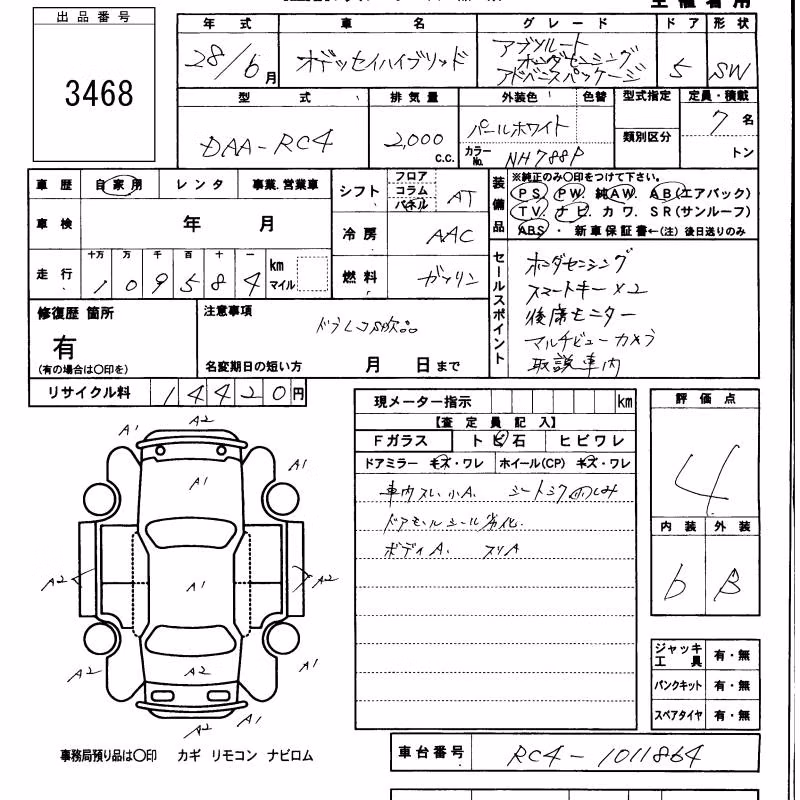 出品番号
3468
年式 車名 グレード ドア 形状
28/6月 オデッセイハイブリッド アブソルート ホンダセンシング アドバンスパッケージ 5 SW
型式 排気量 外装色 色替 型式指定 定員・積載
DAA-RC4 2,000 c.c. パールホワイト 7名
カラーNo. NH788P 類別区分 トン
車歴 自家用 レンタ 事業.営業車
車検 年 月
走行 十万 万 千 百 十 一
109584 km マイル
シフト フロア コラム パネル AT
冷房 AAC
燃料 ガソリン
装備品
※純正のみ〇印をつけて下さい。
PS PW 純AW. AB(エアバック)
TV. ナビ. カワ. SR(サンルーフ)
ABS・ 新車保証書←(注) 後日送りのみ
セールスポイント
ホンダセンシング
スマートキー×2
後席モニター
マルチビューカメラ
取説車内
修復歴 箇所
有
(有の場合は〇印を)
注意事項
ドラレコ欠品
名変期日の短い方 月 日まで
リサイクル料 14420円
現メーター指示 km
【査定員記入】
Fガラス トビ石 ヒビワレ
ドアミラー キズ・ワレ ホイール(CP) キズ・ワレ
車内スレ 小A. シートシワ のしみ
ドアモールシール劣化.
ボディA. スリA
評価点
4
内装 外装
b B
ジャッキ 工具 有・無
パンクキット 有・無
スペアタイヤ 有・無
A2
A1
A1
A1
A2
A1
A2
A2
A2
A1
A1
A2
事務局預り品は〇印 カギ リモコン ナビロム
車台番号 RC4-1011864